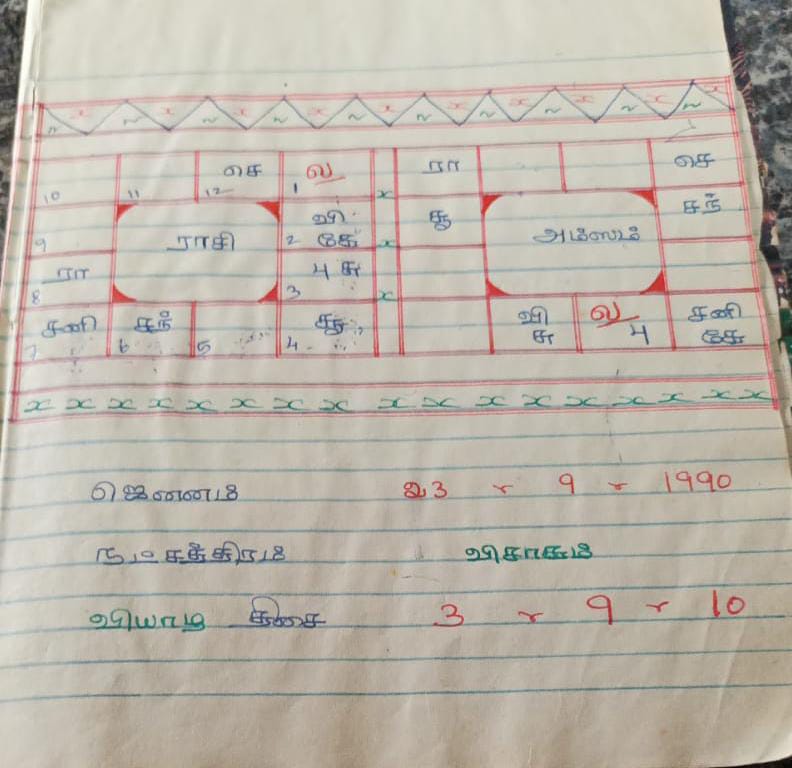 செ ல ரா செ
10 11 12 1
வி கு சந்
9 ராசி 2 கே அம்ஸம்
ரா பு சு
8 3
சனி சந் சூ வி ல சனி
7 6 5 4 சு பு கே
ஜெனனம் 23 - 9 - 1990
நட்சத்திரம் விசாகம்
வியாழ திசை 3 - 9 - 10